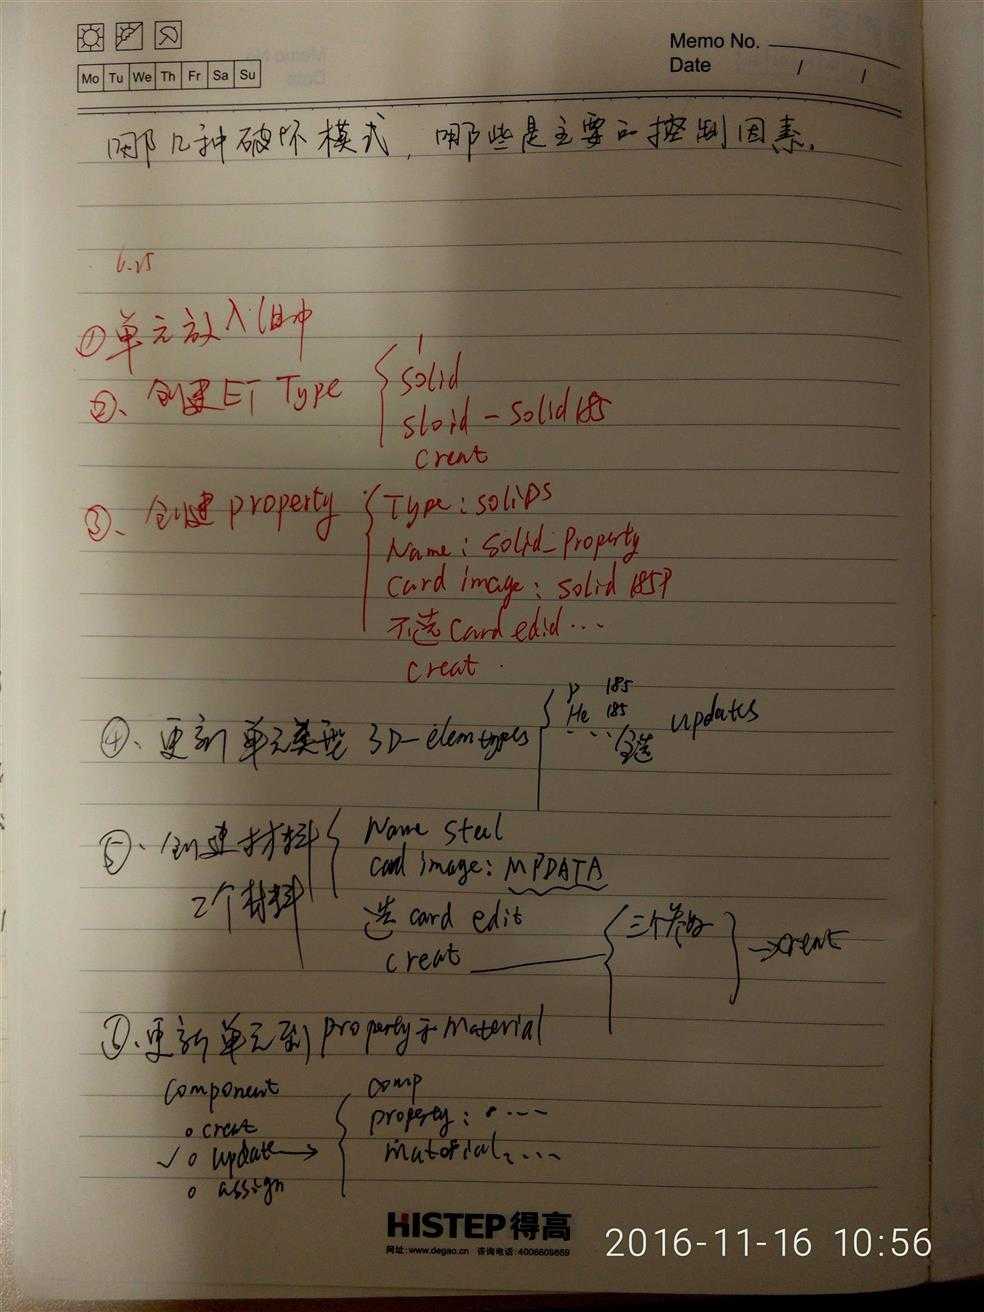 Memo No.
Mo Tu We Th Fr Sa Su
Date / /
哪几种破坏模式，哪些是主要的控制因素.
6.25
①单元放入组中
②、创建ET Type
solid
sloid - solid185
creat
③、创建property
Type : soliDs
Name : solid_Property
Card image : solid 185P
不选 card edid ...
creat
④、更新单元类型 3D-elemtypes
P 185
He 185
... 全选 updates
⑤、创建材料
2个材料
Name steel
card image: MPDATA
选 card edit
creat 三个参数 → creat
更新单元到property于material
component
creat
✓ update →
assign
comp
property : ...
material: ...
HISTEP 得高
网址:www.degao.cn 咨询电话:4006609869
2016-11-16 10:56